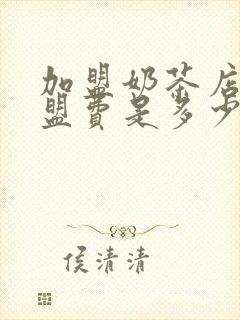 加盟奶茶店
盟费是多少
侯清清